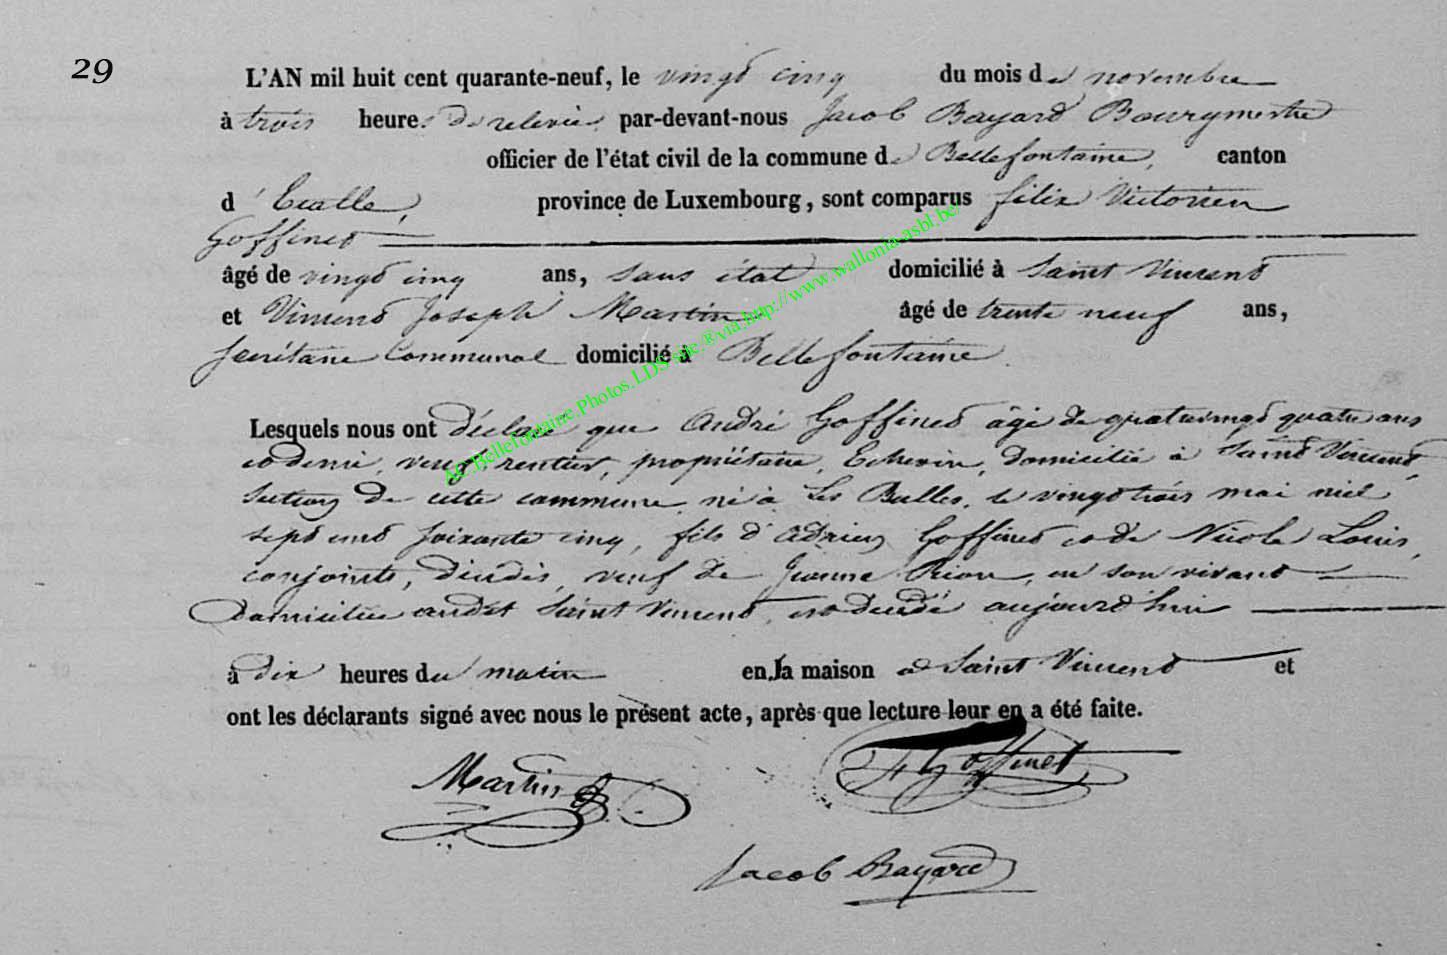 29
L'AN mil huit cent quarante-neuf, le vingt cinq du mois de novembre
à trois heures de relevée par-devant-nous Jacob Bayard Bourgmestre
officier de l'état civil de la commune de Bellefontaine, canton
d'Etalle, province de Luxembourg, sont comparus félix Victorien
Goffinet
âgé de vingt cinq ans, sans état domicilié à Saint Vincent
et Vincent Joseph Martin âgé de trente neuf ans,
Secrétaire Communal domicilié à Bellefontaine.
Lesquels nous ont déclaré que André Goffinet âgé de quatrevingt quatre ans
et demi, veuf, rentier, propriétaire, Echevin, domicilié à Saint Vincent,
section de cette commune, né à Les Bulles, le vingt trois mai mil
sept cent soixante cinq, fils d'Adrien Goffinet et de Nicole Louis,
conjoints, décédés, veuf de Jeanne, en son vivant
domiciliée audit Saint Vincent, est décédé aujourd'hui
à dix heures du matin en la maison à Saint Vincent et
ont les déclarants signé avec nous le présent acte, après que lecture leur en a été faite.
Martin F Goffinet
Jacob Bayard
AC.Bellefontaine.Photos.LDS-snc.®via.http://www.wallonia-asbl.be/